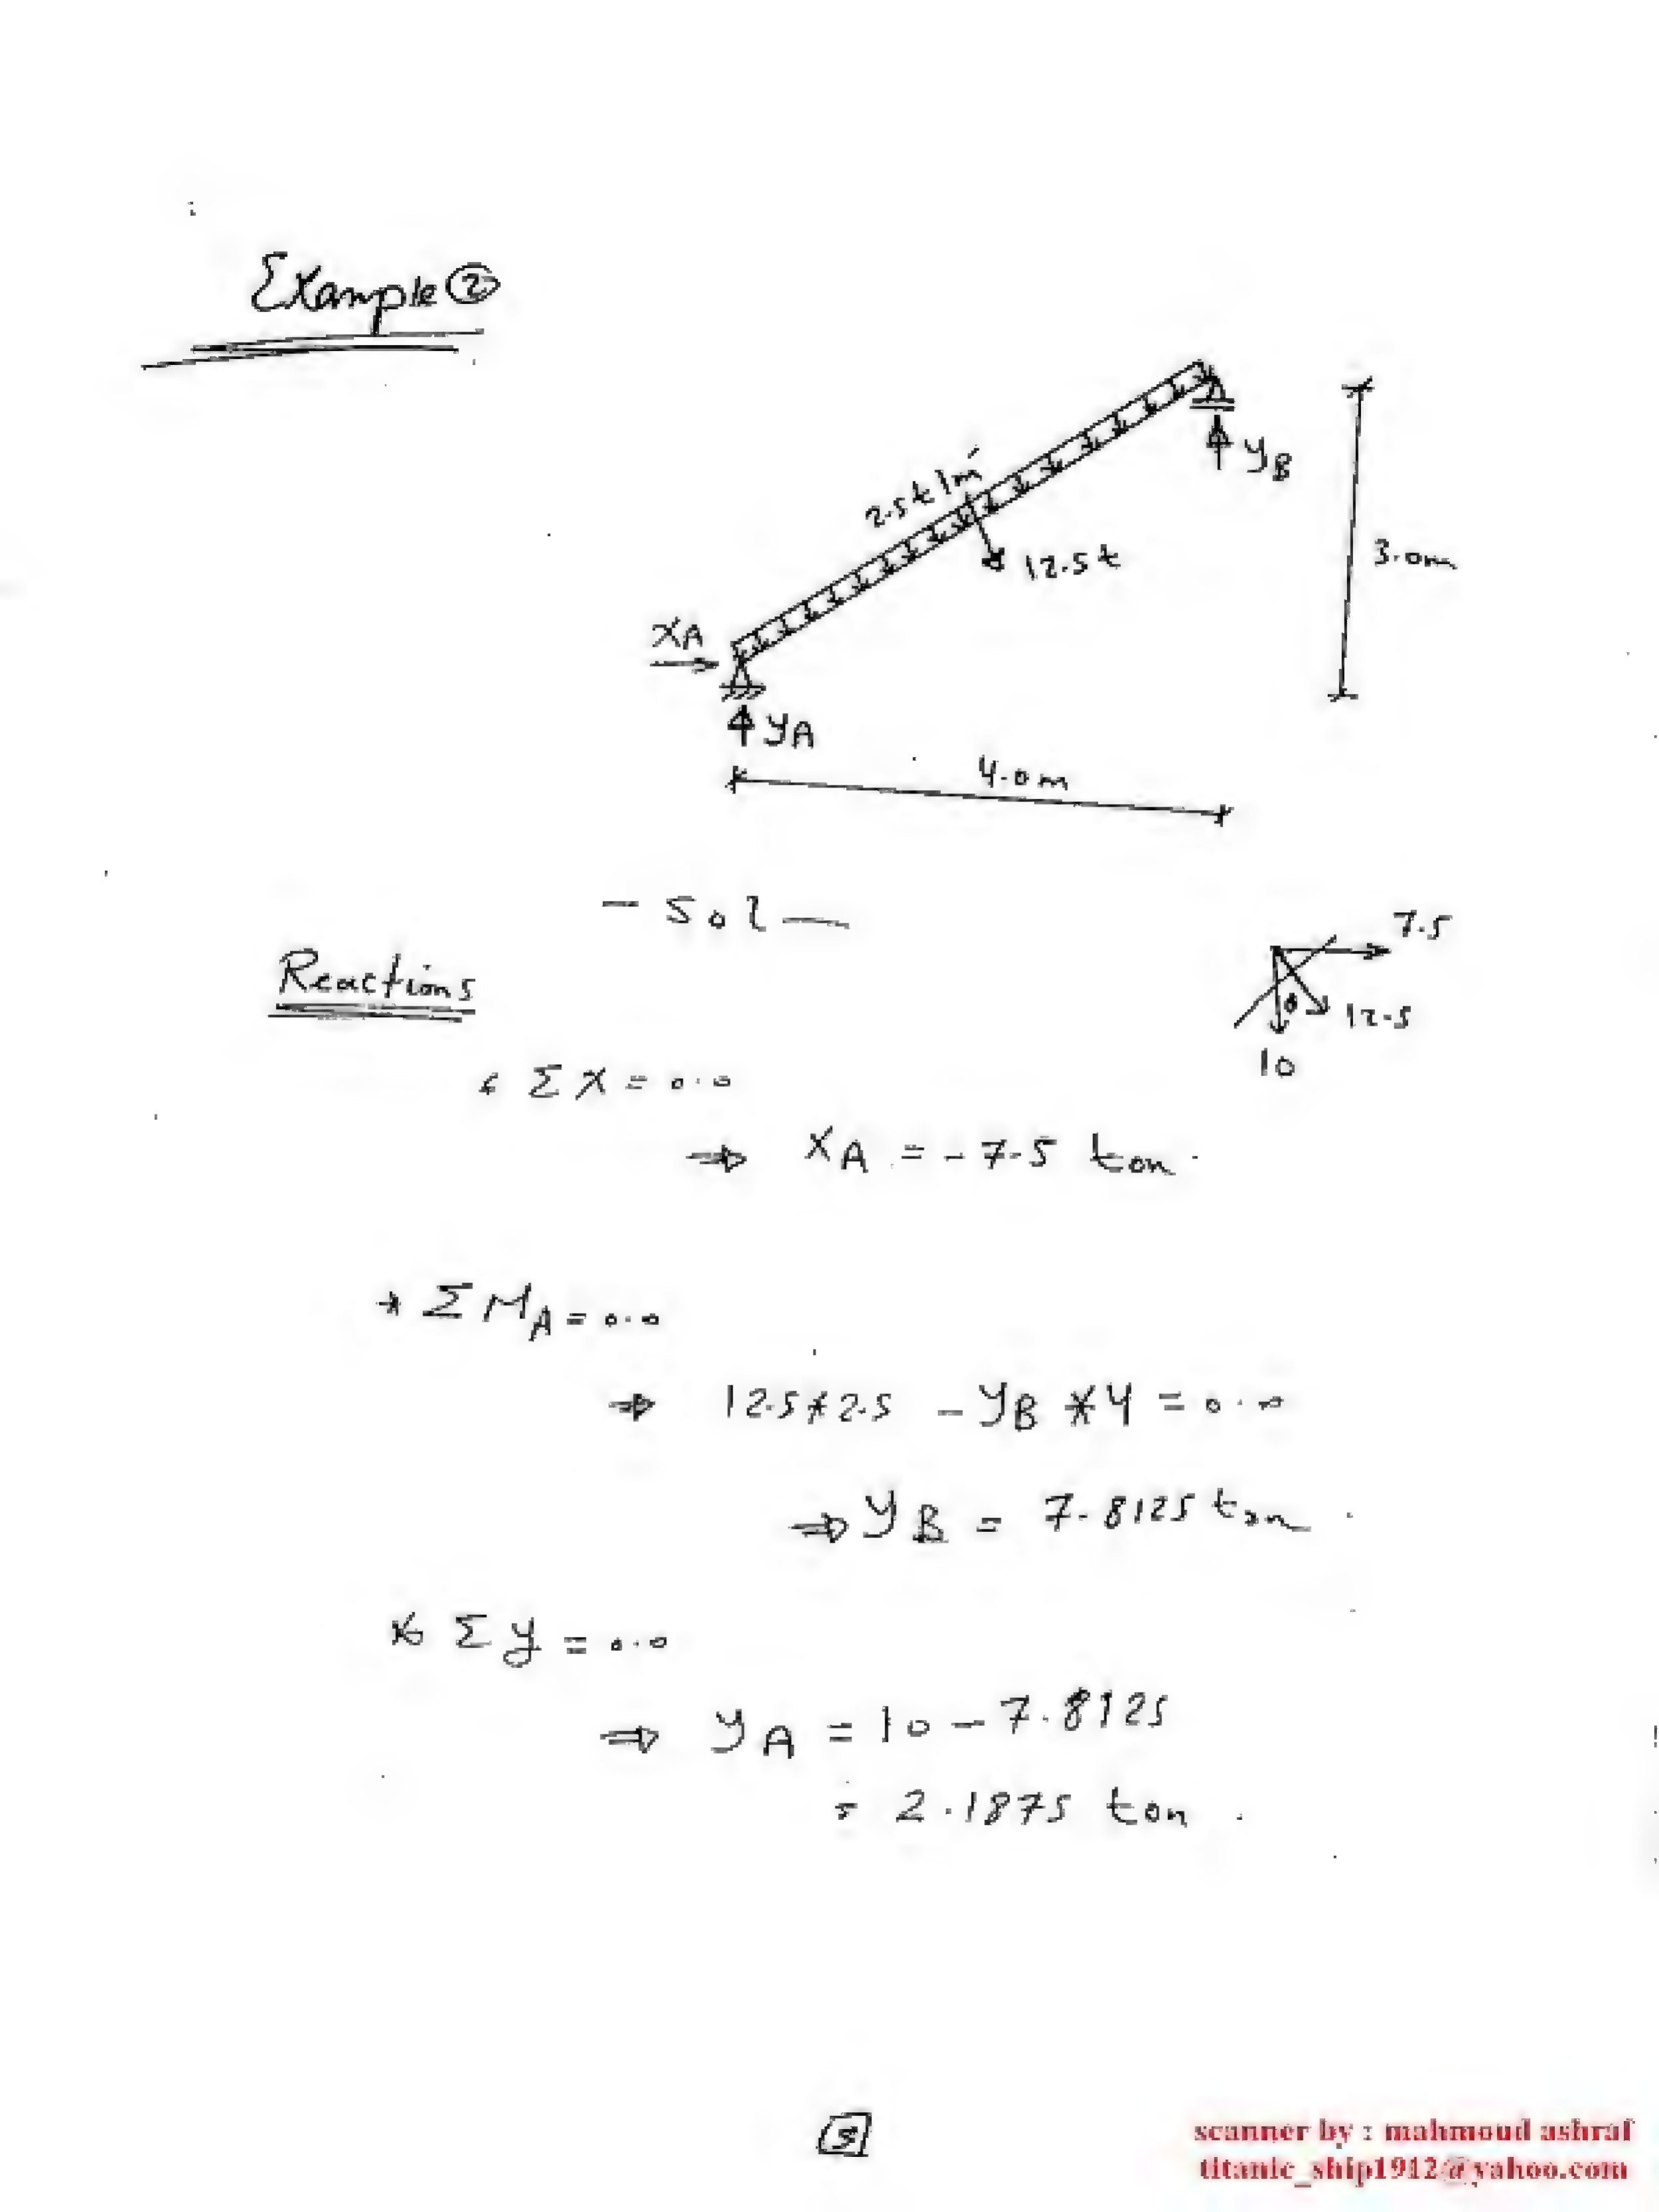 Example ②
2.5 t/m'
yB
12.5 t
3.0 m
XA
yA
4.0 m
- Sol -
7.5
12.5
10
Reactions
* Σ X = 0.0
⇒ XA = - 7.5 ton.
* Σ MA = 0.0
⇒ 12.5 * 2.5 - yB * 4 = 0.0
⇒ yB = 7.8125 ton.
* Σ y = 0.0
⇒ yA = 10 - 7.8125
= 2.1875 ton.
scanner by : mahmoud ashraf
titanic_ship1912@yahoo.com